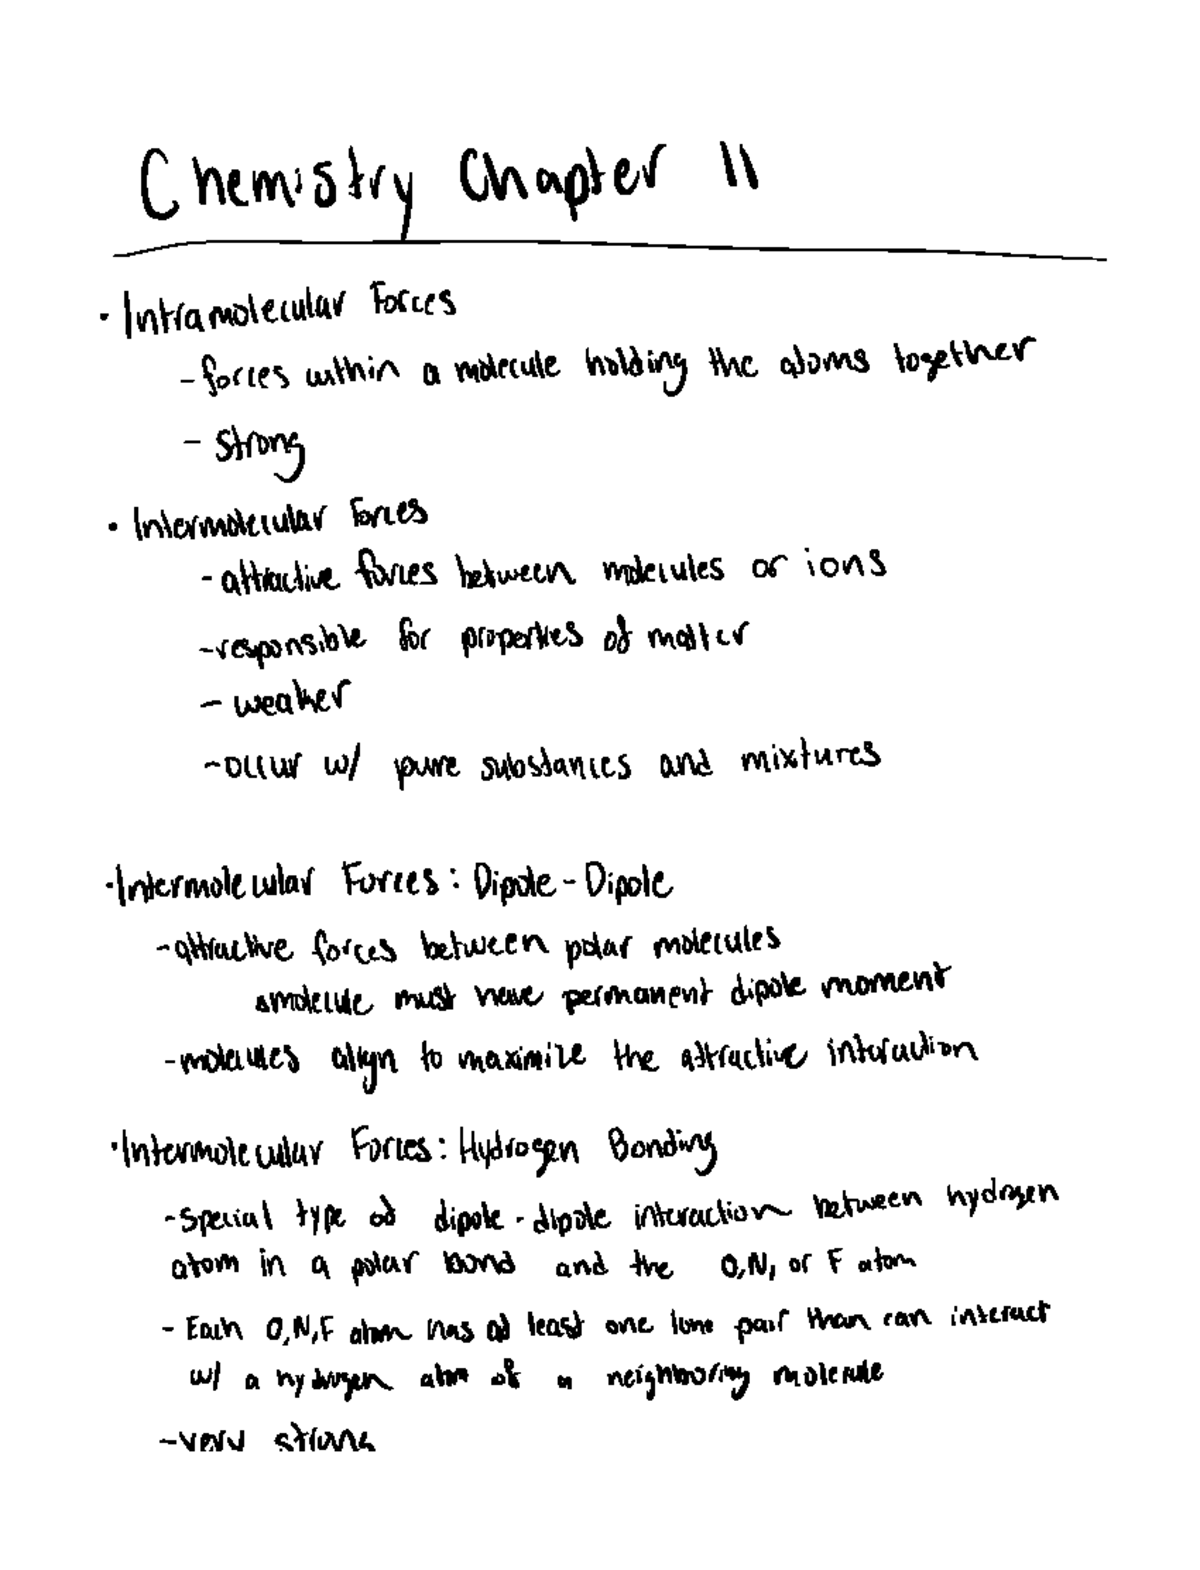 Chemistry Chapter 11
• Intramolecular Forces
- forces within a molecule holding the atoms together
- strong
• Intermolecular Forces
- attractive forces between molecules or ions
- responsible for properties of matter
- weaker
- occur w/ pure substances and mixtures
• Intermolecular Forces: Dipole - Dipole
- attractive forces between polar molecules
molecule must have permanent dipole moment
- molecules align to maximize the attractive interaction
• Intermolecular Forces: Hydrogen Bonding
- special type of dipole-dipole interaction between hydrogen
atom in a polar bond and the O,N, or F atom
- Each O,N,F atom has at least one lone pair than can interact
w/ a hydrogen atom of a neighboring molecule
- very strong